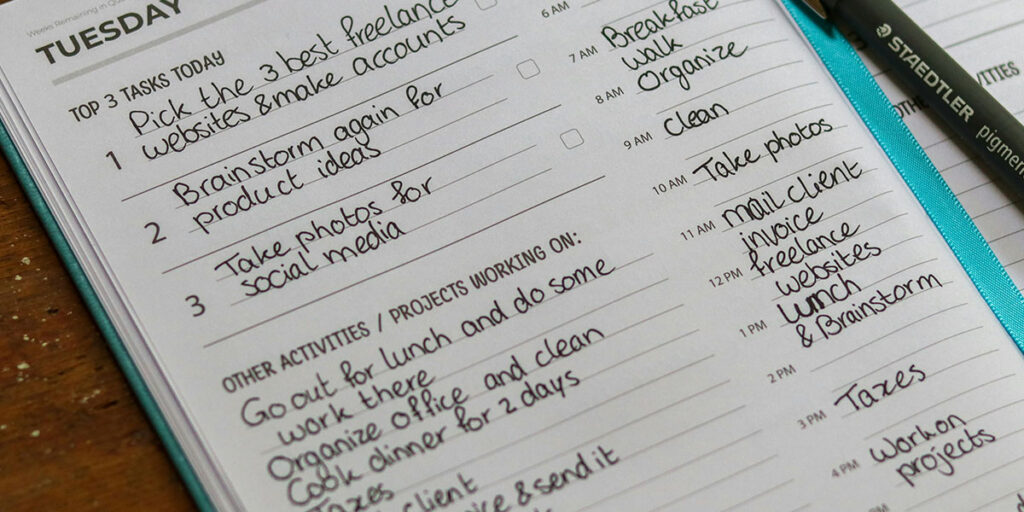 Weeks Remaining in Qua
TUESDAY
TOP 3 TASKS TODAY
1
Pick the 3 best freelance
websites & make accounts
2
Brainstorm again for
product ideas
3
Take photos for
social media
OTHER ACTIVITIES / PROJECTS WORKING ON:
Go out for lunch and do some
work there
Organize office and clean
Cook dinner for 2 days
Taxes
client
& send it
6 AM
Breakfast
7 AM
walk
8 AM
Organize
9 AM
Clean
10 AM
Take photos
11 AM
mail client
invoice
12 PM
freelance
websites
1 PM
lunch
& Brainstorm
2 PM
3 PM
Taxes
4 PM
work on
projects
STAEDTLER
pigment
OTHE
VITIES